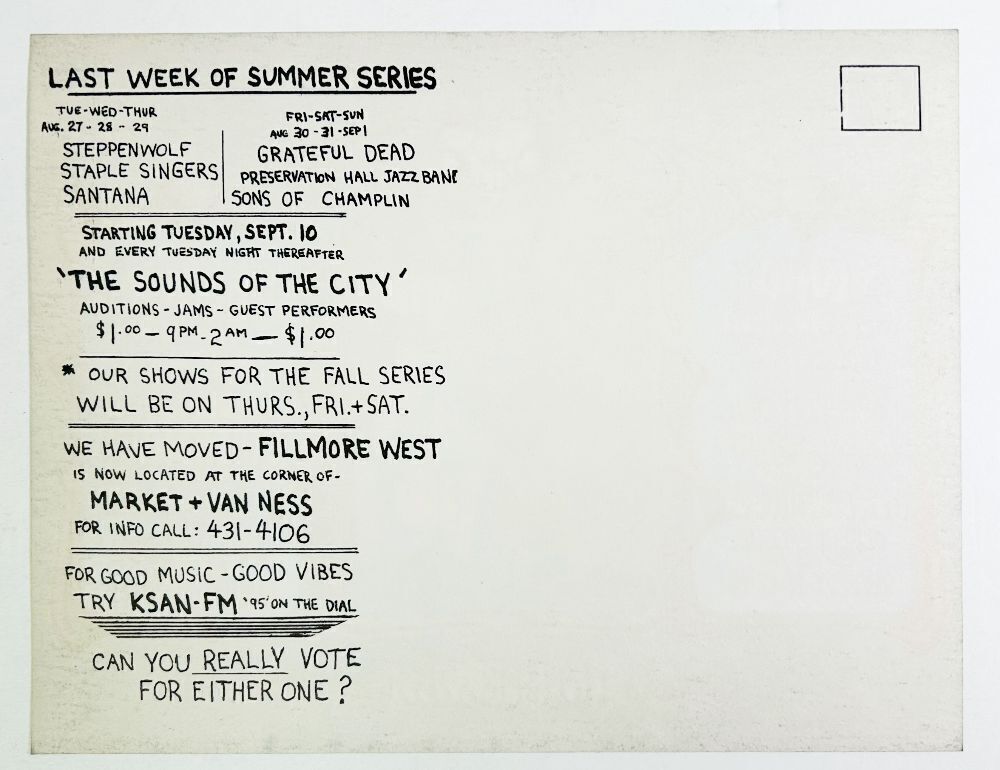 LAST WEEK OF SUMMER SERIES
TUE-WED-THUR
AUG. 27 - 28 - 29
STEPPENWOLF
STAPLE SINGERS
SANTANA
FRI-SAT-SUN
AUG 30 - 31 - SEP 1
GRATEFUL DEAD
PRESERVATION HALL JAZZ BAND
SONS OF CHAMPLIN
STARTING TUESDAY, SEPT. 10
AND EVERY TUESDAY NIGHT THEREAFTER
'THE SOUNDS OF THE CITY'
AUDITIONS - JAMS - GUEST PERFORMERS
$1.00 — 9PM - 2AM — $1.00
* OUR SHOWS FOR THE FALL SERIES
WILL BE ON THURS., FRI. + SAT.
WE HAVE MOVED - FILLMORE WEST
IS NOW LOCATED AT THE CORNER OF -
MARKET + VAN NESS
FOR INFO CALL: 431-4106
FOR GOOD MUSIC - GOOD VIBES
TRY KSAN-FM '95' ON THE DIAL
CAN YOU REALLY VOTE
FOR EITHER ONE?